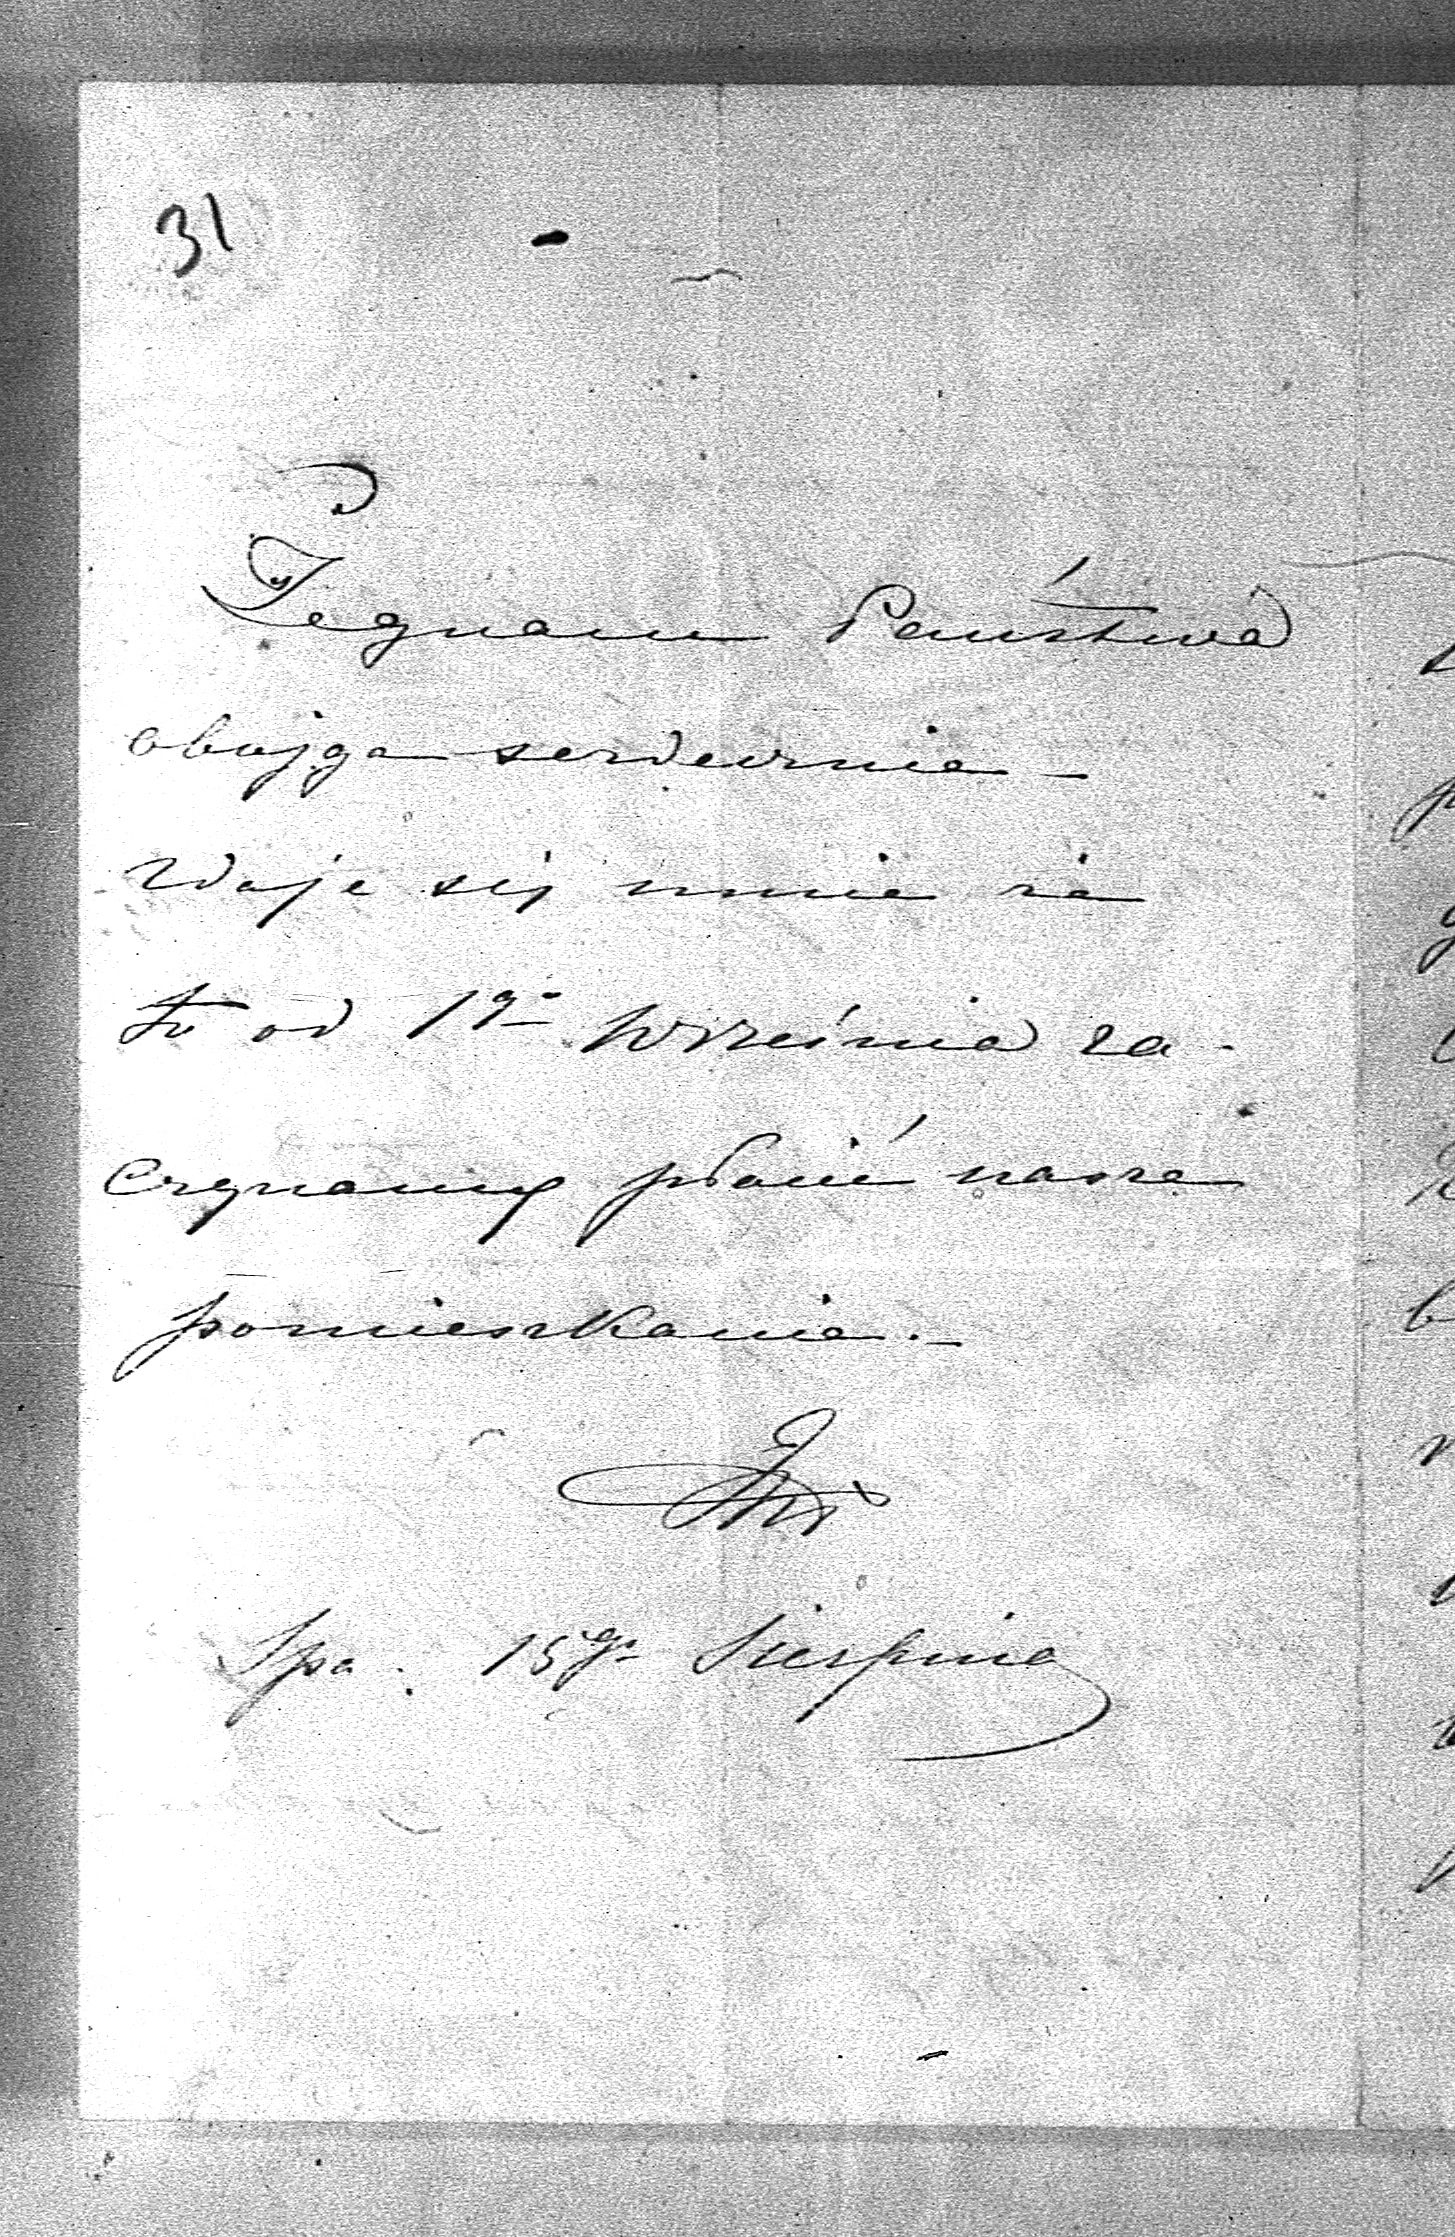 31
Żegnam Państwa
obojga serdecznie -
zdaje się mnie że
to od 1go Września za-
czynamy płacić nasze
pomieszkanie. -
Spa. 15go Sierpnia